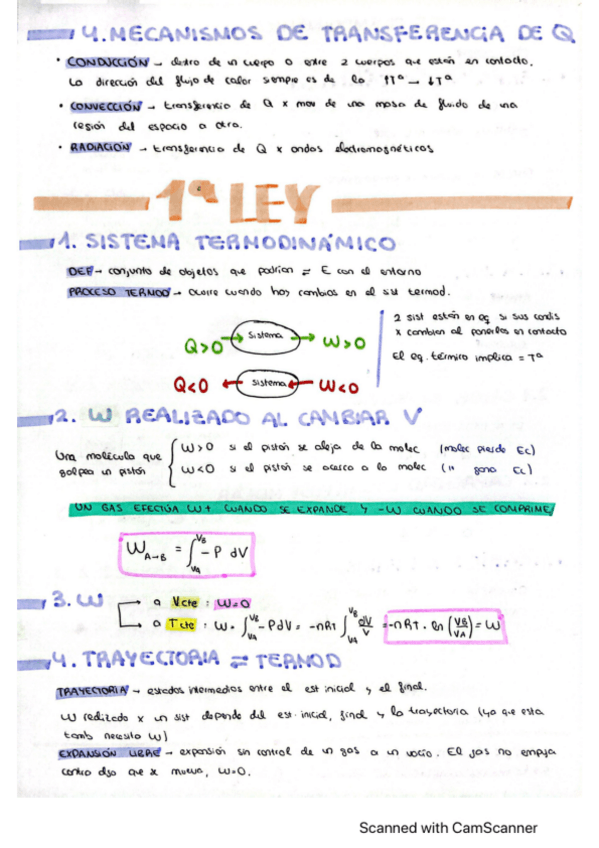 4. MECANISMOS DE TRANSFERENCIA DE Q
• CONDUCCIÓN → dentro de un cuerpo o entre 2 cuerpos que están en contacto.
La dirección del flujo de calor siempre es de la ↑Tª → ↓Tª
• CONVECCIÓN → transferencia de Q x mov de una masa de fluido de una
región del espacio a otra.
• RADIACIÓN → transferencia de Q x ondas electromagnéticas
1ª LEY
1. SISTEMA TERMODINÁMICO
DEF → conjunto de objetos que podrían ⇌ E con el entorno
PROCESO TERMOD → ocurre cuando hay cambios en el sist termod.
Q>0 → Sistema → W>0
Q<0 ← Sistema ← W<0
2 sist están en eq si sus condis
x cambian al ponerlos en contacto
El eq. térmico implica = Tª
2. W REALIZADO AL CAMBIAR V
Una molécula que
golpea un pistón
W>0 si el pistón se aleja de la molec (molec pierde Ec)
W<0 si el pistón se acerca a la molec (" gana Ec)
UN GAS EFECTÚA W+ CUANDO SE EXPANDE Y -W CUANDO SE COMPRIME
W A→B = ∫ VA VB -P dV
3. W
a Vcte : W=0
a Tcte : W = ∫ VA VB -P dV = -nRT ∫ VA VB dV/V = -nRT · ln (VB/VA) = W
4. TRAYECTORIA ⇌ TERMOD
TRAYECTORIA → estados intermedios entre el est inicial y el final.
W realizado x un sist depende del est. inicial, final y la trayectoria (ya que esta
tamb necesita W)
EXPANSIÓN LIBRE → expansión sin control de un gas a un vacío. El gas no empuja
contra algo que se mueva, W=0.
Scanned with CamScanner